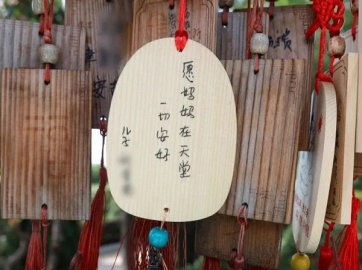 愿妈妈在天堂
一切安好
儿子